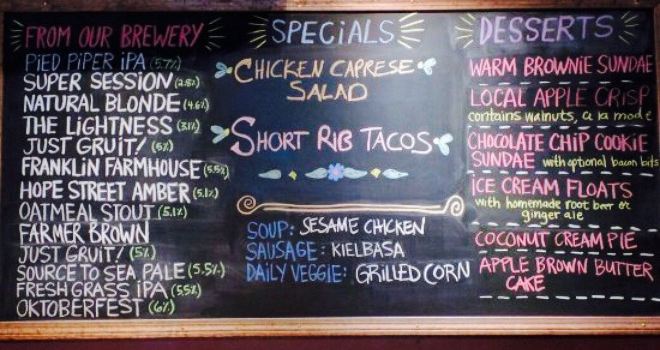 FROM OUR BREWERY
PIED PIPER IPA (5.7%)
SUPER SESSION (2.8%)
NATURAL BLONDE (4.6%)
THE LIGHTNESS (3.1%)
JUST GRUIT! (5%)
FRANKLIN FARMHOUSE (5.5%)
HOPE STREET AMBER (5.1%)
OATMEAL STOUT (5.1%)
FARMER BROWN
JUST GRUIT! (5%)
SOURCE TO SEA PALE (5.5%)
FRESH GRASS IPA (5.5%)
OKTOBERFEST (6%)
SPECIALS
CHICKEN CAPRESE
SALAD
SHORT RIB TACOS
SOUP: SESAME CHICKEN
SAUSAGE: KIELBASA
DAILY VEGGIE: GRILLED CORN
DESSERTS
WARM BROWNIE SUNDAE
LOCAL APPLE CRISP
contains walnuts, a la mode
CHOCOLATE CHIP COOKIE
SUNDAE with optional bacon bits
ICE CREAM FLOATS
with homemade root beer or
ginger ale
COCONUT CREAM PIE
APPLE BROWN BUTTER
CAKE